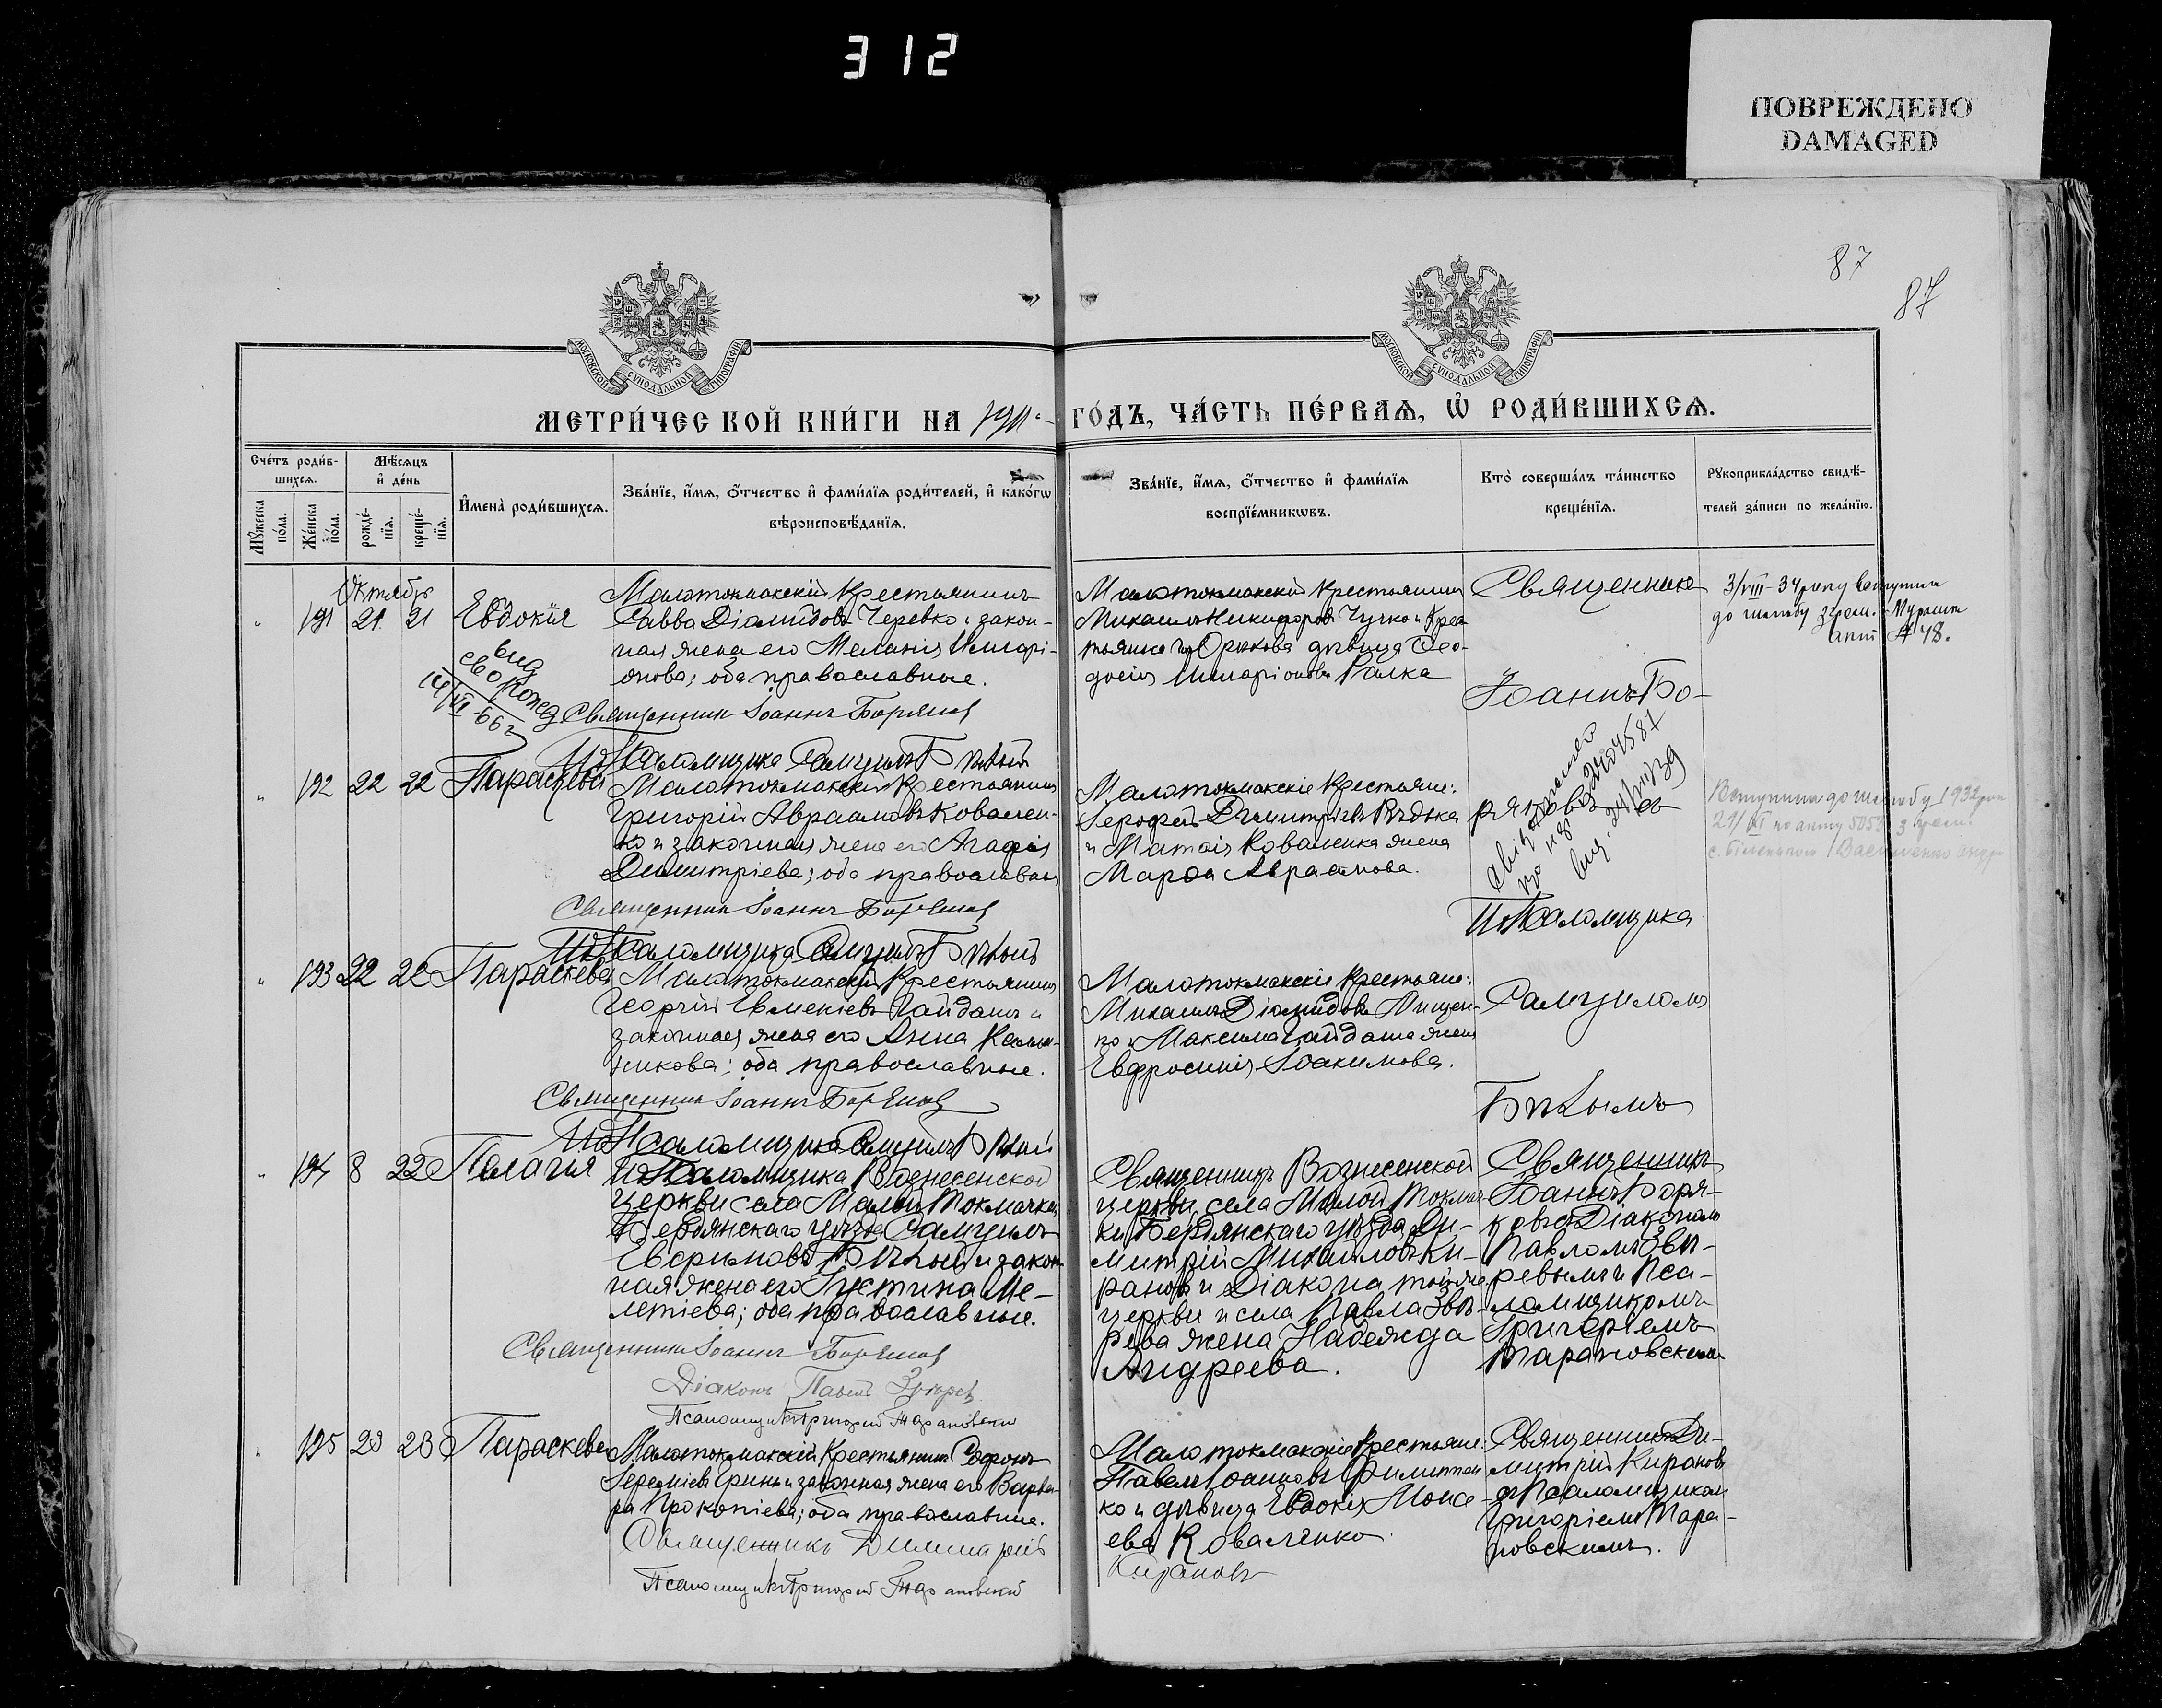 312
ПОВРЕЖДЕНО
DAMAGED
87
87
МОСКОВСКОЙ СУНОДАЛЬНОЙ ТИПОГРАФІИ
МОСКОВСКОЙ СУНОДАЛЬНОЙ ТИПОГРАФІИ
МЕТРИ́ЧЕСКОЙ КНИ́ГИ НА 1911 ГО́ДЪ, ЧА́СТЬ ПЕ́РВАѦ, Ѽ РОДИ́ВШИХСѦ.
Сче́тъ роди́в-
шихсѧ.
Мѣ́сѧцъ
и҆ де́нь
Мꙋ́жеска
по́ла.
Же́нска
по́ла.
рожде́-
нїѧ.
креще́-
нїѧ.
И҆мена̀ роди́вшихсѧ.
Зва́нїе, и҆́мѧ, ѻ҆́тчество и҆ фами́лїѧ роди́телей, и҆ како́гѡ
вѣроисповѣ́данїѧ.
Зва́нїе, и҆́мѧ, ѻ҆́тчество и҆ фами́лїѧ
воспрїе́мникѡвъ.
Кто̀ соверша́лъ та́инство
креще́нїѧ.
Рꙋкоприкла́дство свидѣ́-
телей за́писи по жела́нїю.
Октябрь
191 21 21 Евдокія
Малотокмакскій крестьянинъ
Савва Діамидовъ Черевко и закон-
ная жена его Меланія Иларі-
онова; оба православные.
Священникъ Іоаннъ Боряковъ
И. д. Псаломщика Самуилъ Бѣлый
Малотокмакскій крестьянинъ
Михаилъ Никифоровъ Чучко и крес
тьянина Орѣхова дѣвица Ѳео-
досія Иларіонова Галка
Священникъ
Іоаннъ Бо-
3/VIII-34 року вступила
до шлюбу з гром.
акт № 48.
вид
свокопед
14/VI-66 г
192 22 22 Параскева
Малотокмакскій крестьянинъ
Григорій Авраамовъ Ковален-
ко и законная жена его Агафія
Димитріева; оба православные
Священникъ Іоаннъ Боряковъ
И. д. Псаломщика Самуилъ Бѣлый
Малотокмакскіе крестьяне:
Іерофей Димитріевъ Рѣдька
и Матѳія Коваленка жена
Марѳа Авраамова.
ряковъ съ
И. д. Псаломщика
Вступила до шлюбу 1932 року
193 22 22 Параскева
Малотокмакскій крестьянинъ
Георгій Евменіевъ Гайдашъ и
законная жена его Анна Калли-
никова; оба православные.
Священникъ Іоаннъ Боряковъ
И. д. Псаломщика Самуилъ Бѣлый
Малотокмакскіе крестьяне:
Михаилъ Діамидовъ Мищен-
ко и Максима Гайдаша жена
Евфросинія Іоакимова.
Самуиломъ
Бѣлымъ
194 8 22 Пелагія
И. д. Псаломщика Вознесенской
церкви села Малой Токмачки
Бердянскаго уѣзда Самуилъ
Евѳримовъ Бѣлый и закон
ная жена его Іустина Ме-
летіева; оба православные.
Священникъ Іоаннъ Боряковъ
Діаконъ Павелъ Звѣревъ
Псаломщикъ Григорій Тарановскій
Священникъ Вознесенской
церкви, села Малой Токмач
ки Бердянскаго уѣзда Ди-
митрій Михайловъ Ки-
рановъ и Діакона той же
церкви и села Павла Звѣ-
рева жена Надежда
Андреева.
Священникъ
Іоаннъ Боря-
ковъ съ Діакономъ
Павломъ Звѣ-
ревымъ и Пса-
ломщикомъ
Григоріемъ
Тарановскимъ
195 23 23 Параскева
Малотокмакскій крестьянинъ Софронъ
Іереміевъ Гринь и законная жена его Варва-
ра Прокопіева; оба православные.
Священникъ Димитрій Кирановъ
Псаломщикъ Григорій Тарановскій
Малотокмакскіе крестьяне:
Павелъ Іоанновъ Филиппен
ко и дѣвица Евдокія Моисе-
ева Коваленко.
Священникъ Ди-
митрій Кирановъ
съ Псаломщикомъ
Григоріемъ Тара-
новскимъ.